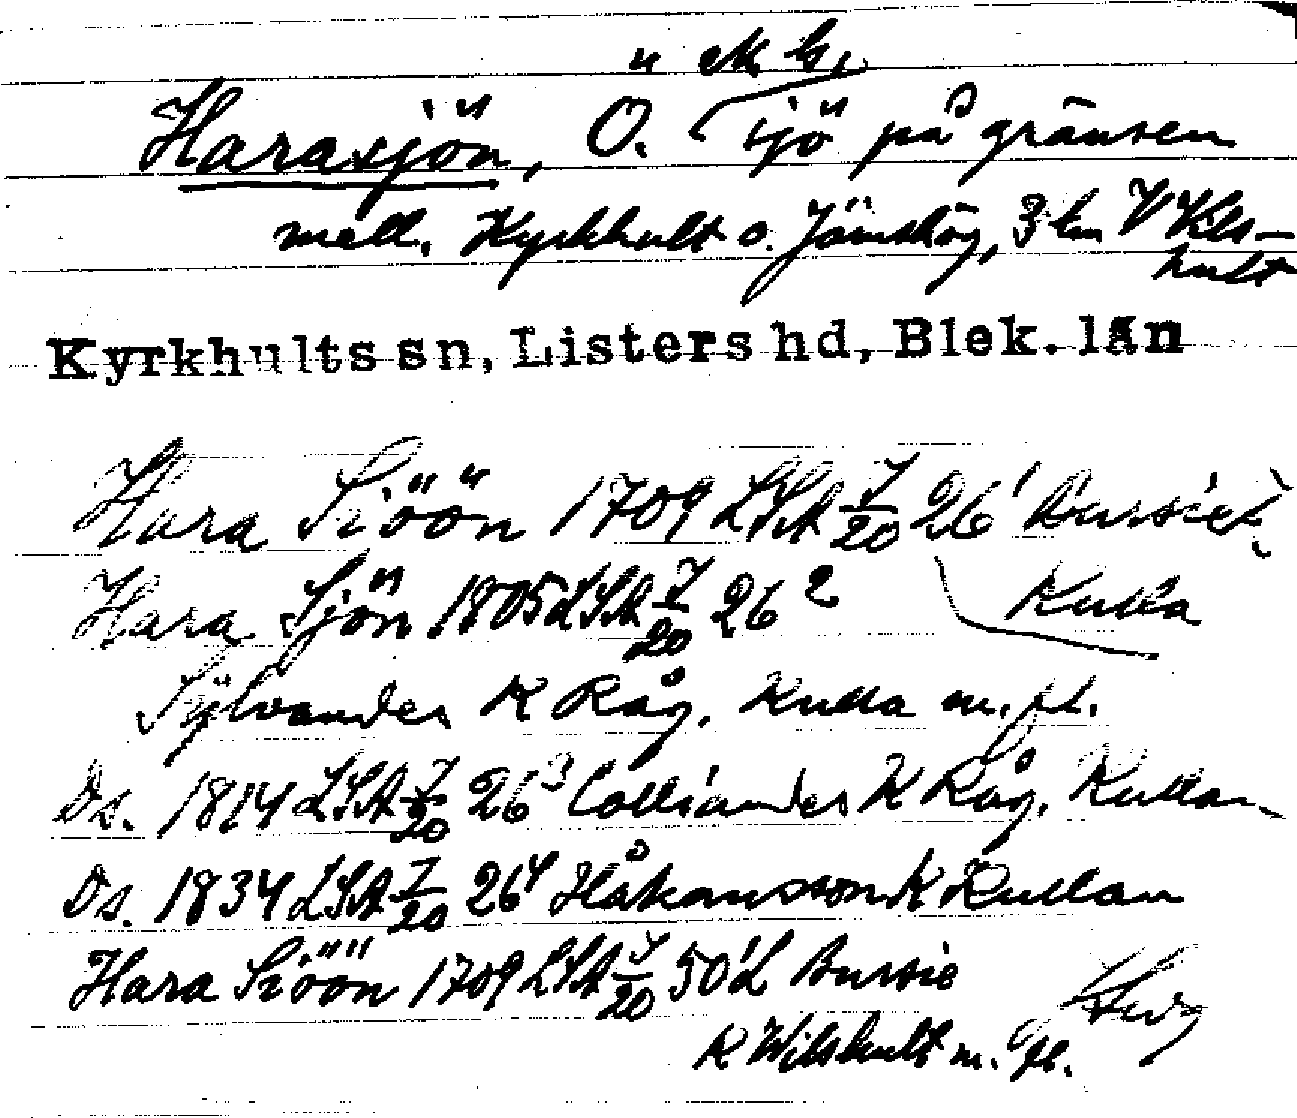 " ek bl,
Harasjön, Ö. sjö på gränsen
mell. Kyrkhult o. Jämshög, 3 km V Kls-
hult
Kyrkhults sn, Listers hd, Blek. län
Hara Siöön 1709 LSA 7/20 26¹ Bursie L
Hara Sjön 1805 LSA 7/20 26² Kulla
Sylvander K Råg. Kulla m. fl.
Ds. 1814 LSA 7/20 26³ Colliander K Råg. Kullan
Ds. 1834 LSA 7/20 26⁴ Håkansson K Kullan
Hara Siöön 1709 LSA 7/20 50¹ L Bursie
K Wilshult m. fl.